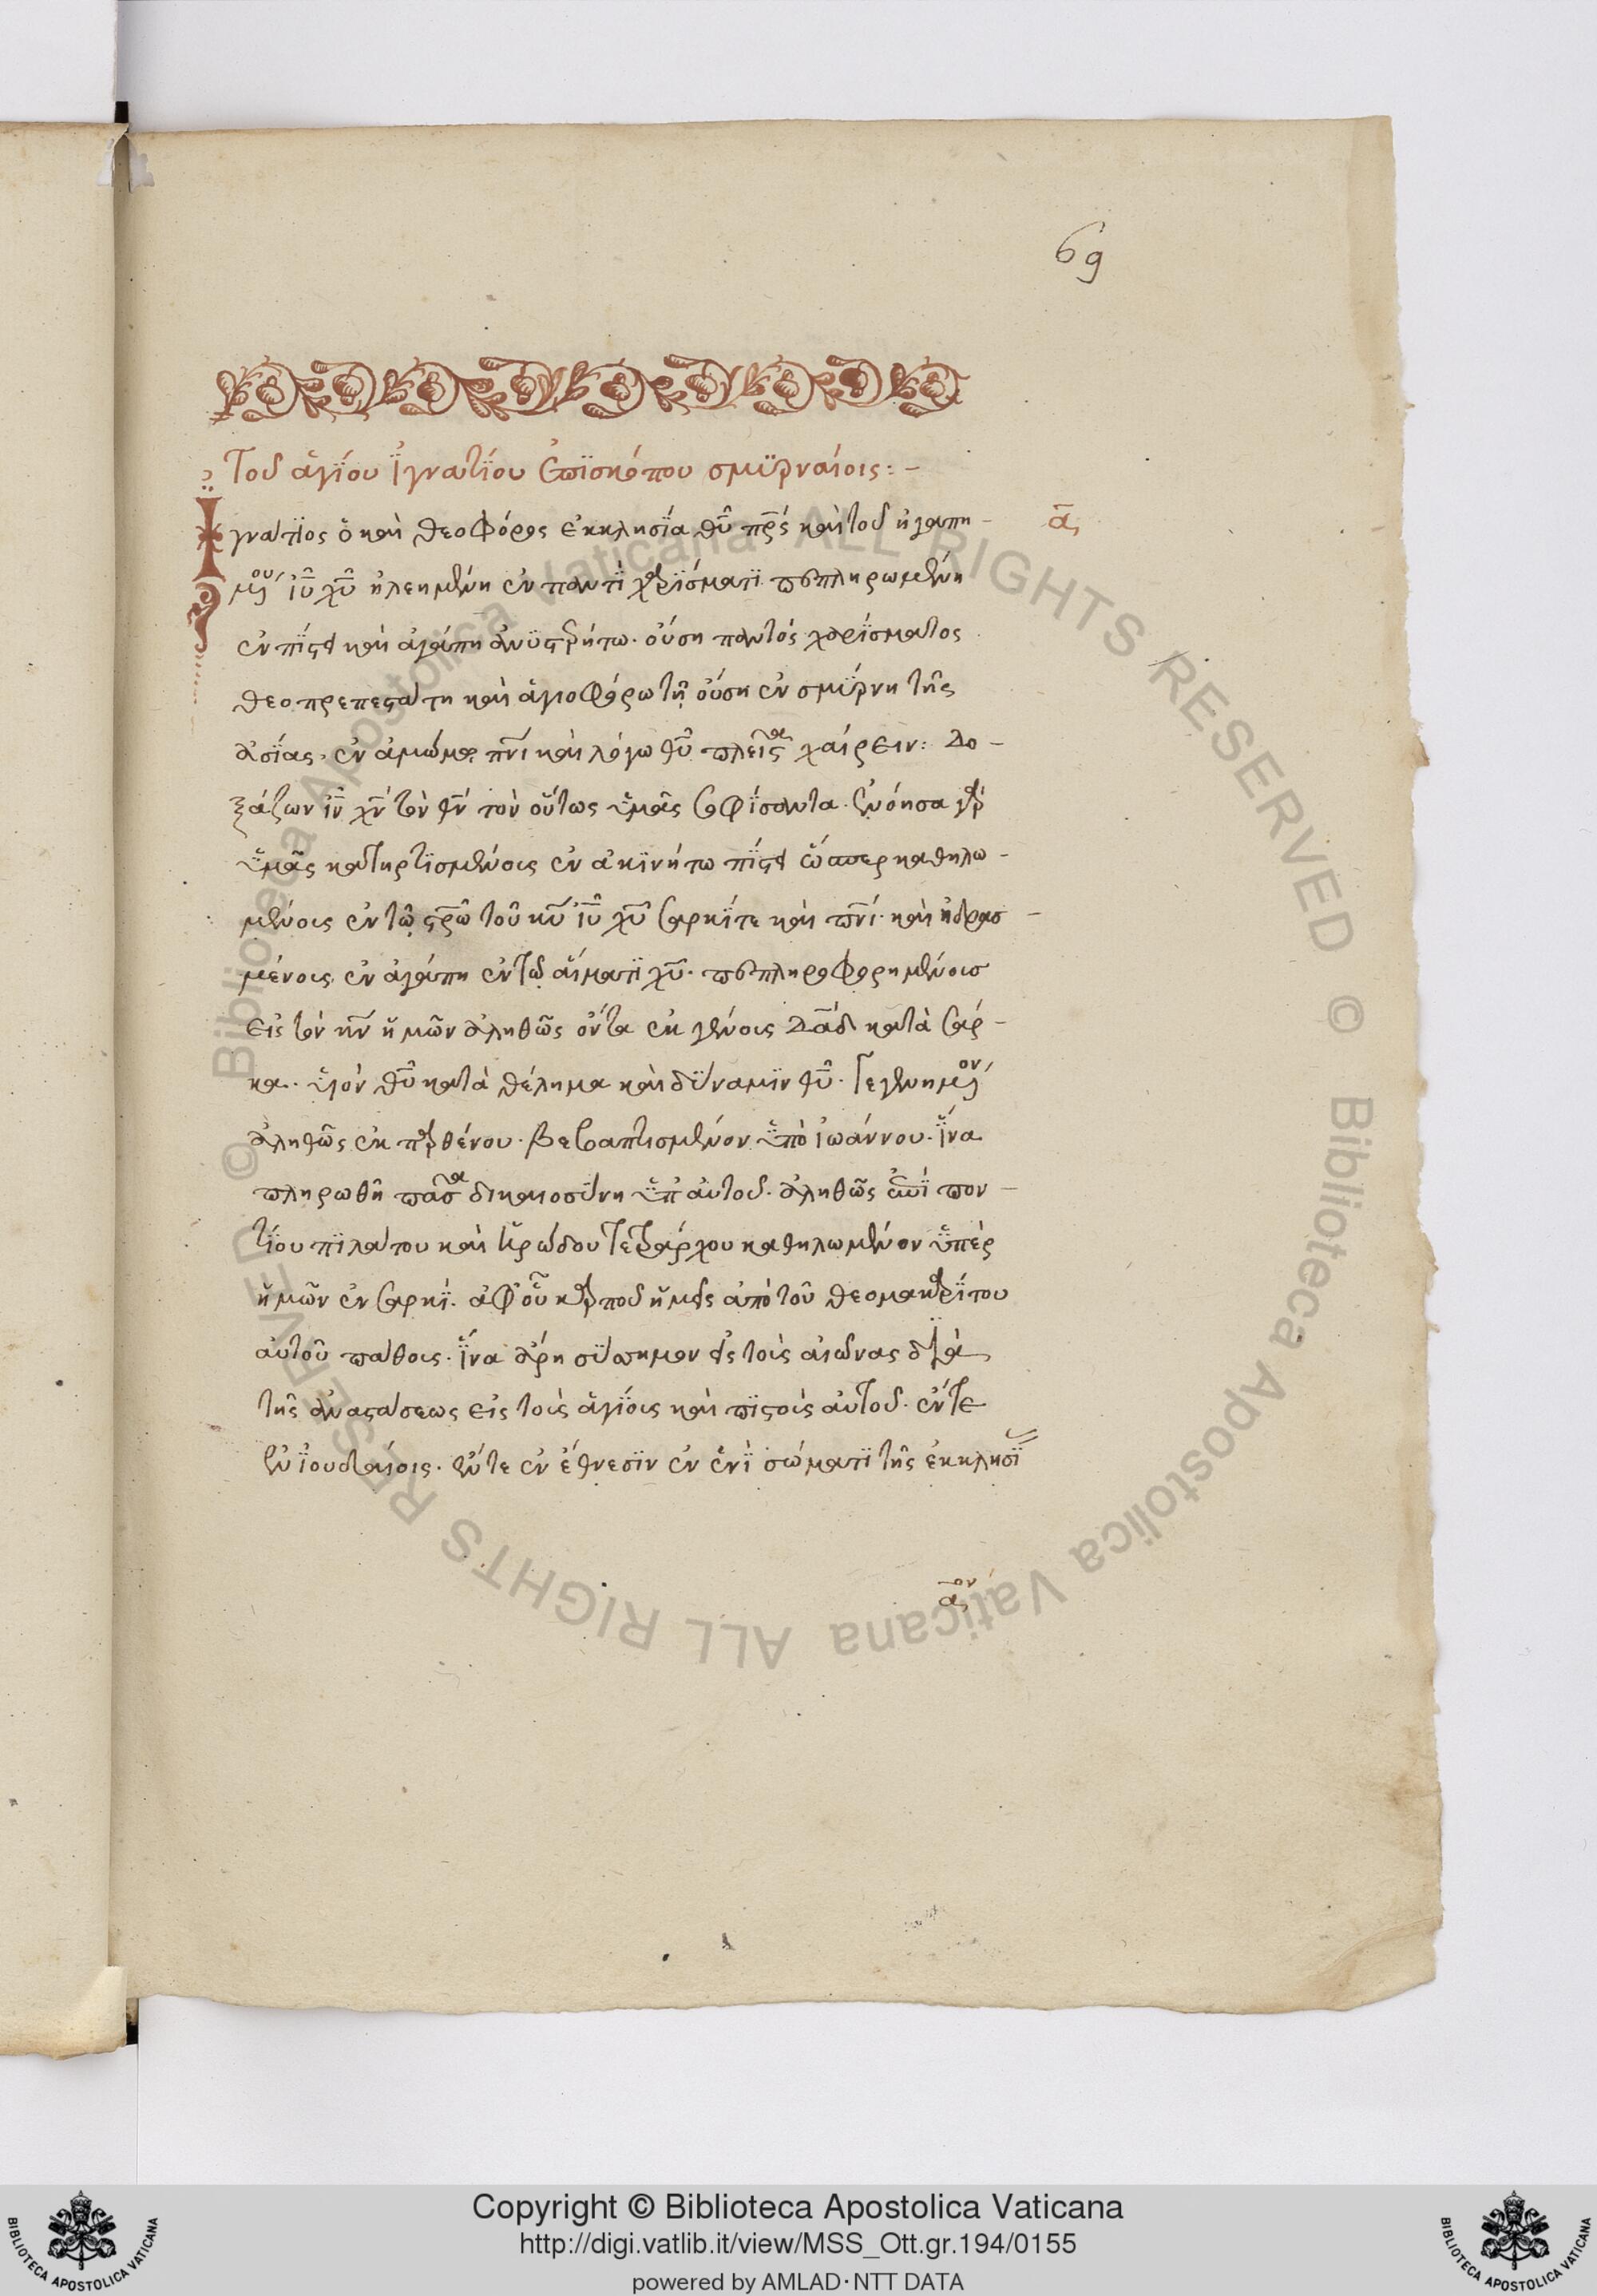 69
Τοῦ ἁγίου ἰγνατίου ἐπϊσκόπου σμϋρναίοις:-
Ιγνατϊος ὁ καὶ θεοφόρος ἐκκλησϊα θ̅υ̅ π̅ρ̅ς̅ καὶ τοῦ ἠγαπη- α̅
μ(έν)ου ι̅υ̅ χ̅υ̅ ἠλεημένη ἐν παντὶ χαρϊσματϊ πεπληρωμένη
ἐν πίστει καὶ ἀγάπη ἀνϋστερήτω. οὔση παντὸς χαρϊσματος
θεοπρεπεστάτη καὶ ἁγιοφόρω τῆ οὔση ἐν σμϋρνη τῆς
ἀσίας, ἐν ἀμώμω π̅ν̅ι̅ καὶ λόγω θ̅υ̅ πλεῖστα χαίρειν: Δο-
ξάζων ι̅ν̅ χ̅ν̅ τὸν θ̅ν̅ τὸν οὕτως ὑμᾶς σοφίσαντα. ἐνόησα γὰρ
ὑμᾶς κατηρτϊσμένοις ἐν ἀκϊνήτω πίστει ὥσπερ καθηλω-
μένοις ἐν τῶ σ̅ρ̅ῶ τοῦ κ̅υ̅ ι̅υ̅ χ̅υ̅ σαρκίτε καὶ π̅ν̅ι̅. καὶ ἡδρασ-
μένοις ἐν ἀγάπη ἐν τῶ αἵματϊ χ̅υ̅. πεπληροφορημένοισ
εἰς τὸν κ̅ν̅ ἡμῶν ἀληθῶς ὄντα ἐκ γένοις Δ̅α̅δ̅ κατὰ σάρ-
κα. ὑϊὸν θ̅υ̅ κατὰ θέλημα καὶ δϋναμϊν θ̅υ̅. Γεγενημ(έν)ον
ἀληθῶς ἐκ παρθένου. βεβαπτισμένον ὑπὸ ἰωάννου. ἵνα
πληρωθῆ πᾶσα δικαιοσϋνη ὑπ' αὐτοῦ. ἀληθῶς ἐπὶ πον-
τίου πϊλάτου καὶ ἡρώδου τετράρχου καθηλωμένον ὑπὲρ
ἡμῶν ἐν σαρκϊ. ἀφ' οὗ καρποῦ ἡμεῖς ἀπὸ τοῦ θεομακαρίτου
αὐτοῦ πάθοις. ἵνα ἄρη σϋσσημον εἰς τοὺς αἰῶνας διὰ
τῆς ἀναστάσεως εἰς τοὺς ἁγίοις καὶ πϊστοὺς αὐτοῦ. ἔντε
ἐν ἰουδαίοις. ἔντε ἐν ἔθνεσϊν ἐν ἑνὶ σώματϊ τῆς ἐκκλησϊ
α̅ον
Copyright © Biblioteca Apostolica Vaticana
http://digi.vatlib.it/view/MSS_Ott.gr.194/0155
powered by AMLAD·NTT DATA
BIBLIOTECA APOSTOLICA VATICANA
BIBLIOTECA APOSTOLICA VATICANA
© Biblioteca Apostolica Vaticana ALL RIGHTS RESERVED © Biblioteca Apostolica Vaticana ALL RIGHTS RESERVED